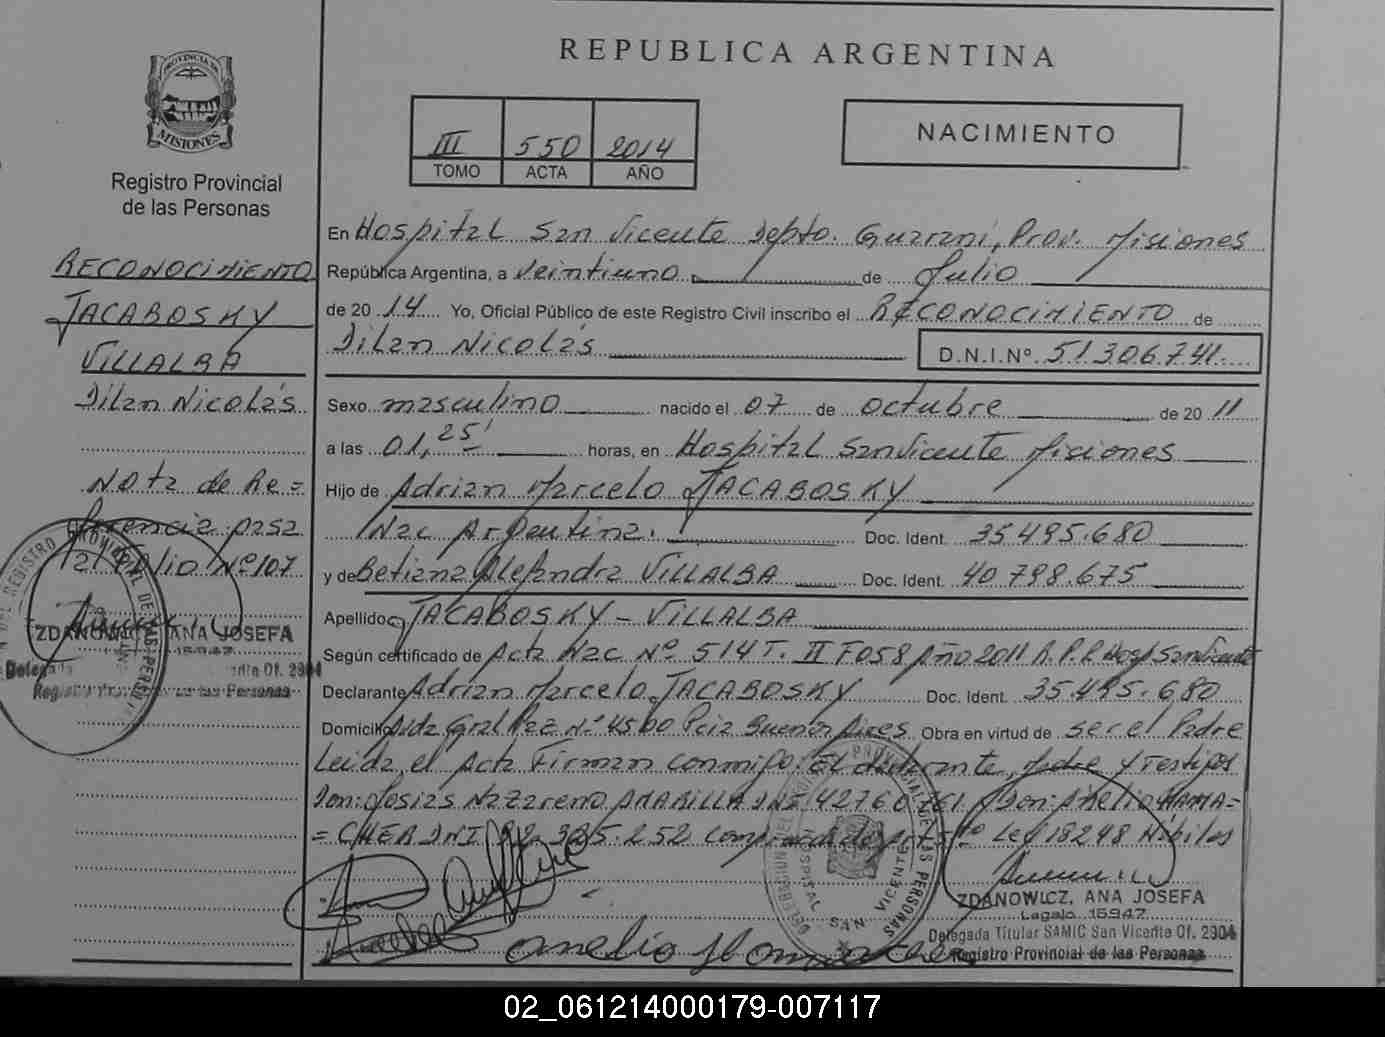 REPUBLICA ARGENTINA
PROVINCIA DE
MISIONES
Registro Provincial
de las Personas
III 550 2014
TOMO ACTA AÑO
NACIMIENTO
RECONOCIMIENTO
JACABOSKY
VILLALBA
Dilan Nicolás
Nota de Re=
ferencia pasa
al Folio Nº 107
ZDANOWICZ, ANA JOSEFA
En Hospital San Vicente Depto. Guaraní, Prov. Misiones
República Argentina, a veintiuno de Julio
de 2014 Yo, Oficial Público de este Registro Civil inscribo el RECONOCIMIENTO de
Dilan Nicolás D.N.I.Nº 51.306.741
Sexo masculino nacido el 07 de octubre de 2011
a las 01,25' horas, en Hospital San Vicente Misiones
Hijo de Adrian Marcelo JACABOSKY
Nac Argentina. Doc. Ident. 35.495.680
y de Betiana Alejandra VILLALBA Doc. Ident. 40.798.675
Apellido JACABOSKY - VILLALBA
Según certificado de Acta Nac Nº 514 T. II F058 Año 2011 R.P.P. Hosp San Vicente
Declarante Adrian Marcelo JACABOSKY Doc. Ident. 35.495.680
Domicilio Avda Gral Paz Nº 4500 Pcia Buenos Aires Obra en virtud de ser el Padre
Leida el Acta Firman conmigo: El declarante, Madre y Testigos
Don: Josias Nazareno AMARILLA DNI 42760761 y Don: Amelio HAMA=
=CHER DNI 92.325.252 Comprendido Art 5to Ley 18248 Hábiles
Amelio
DELEGACION DEL REGISTRO PROVINCIAL DE LAS PERSONAS
HOSPITAL SAN VICENTE
ZDANOWICZ, ANA JOSEFA
Legajo 15947
Delegada Titular SAMIC San Vicente Of. 2904
Registro Provincial de las Personas
02_061214000179-007117